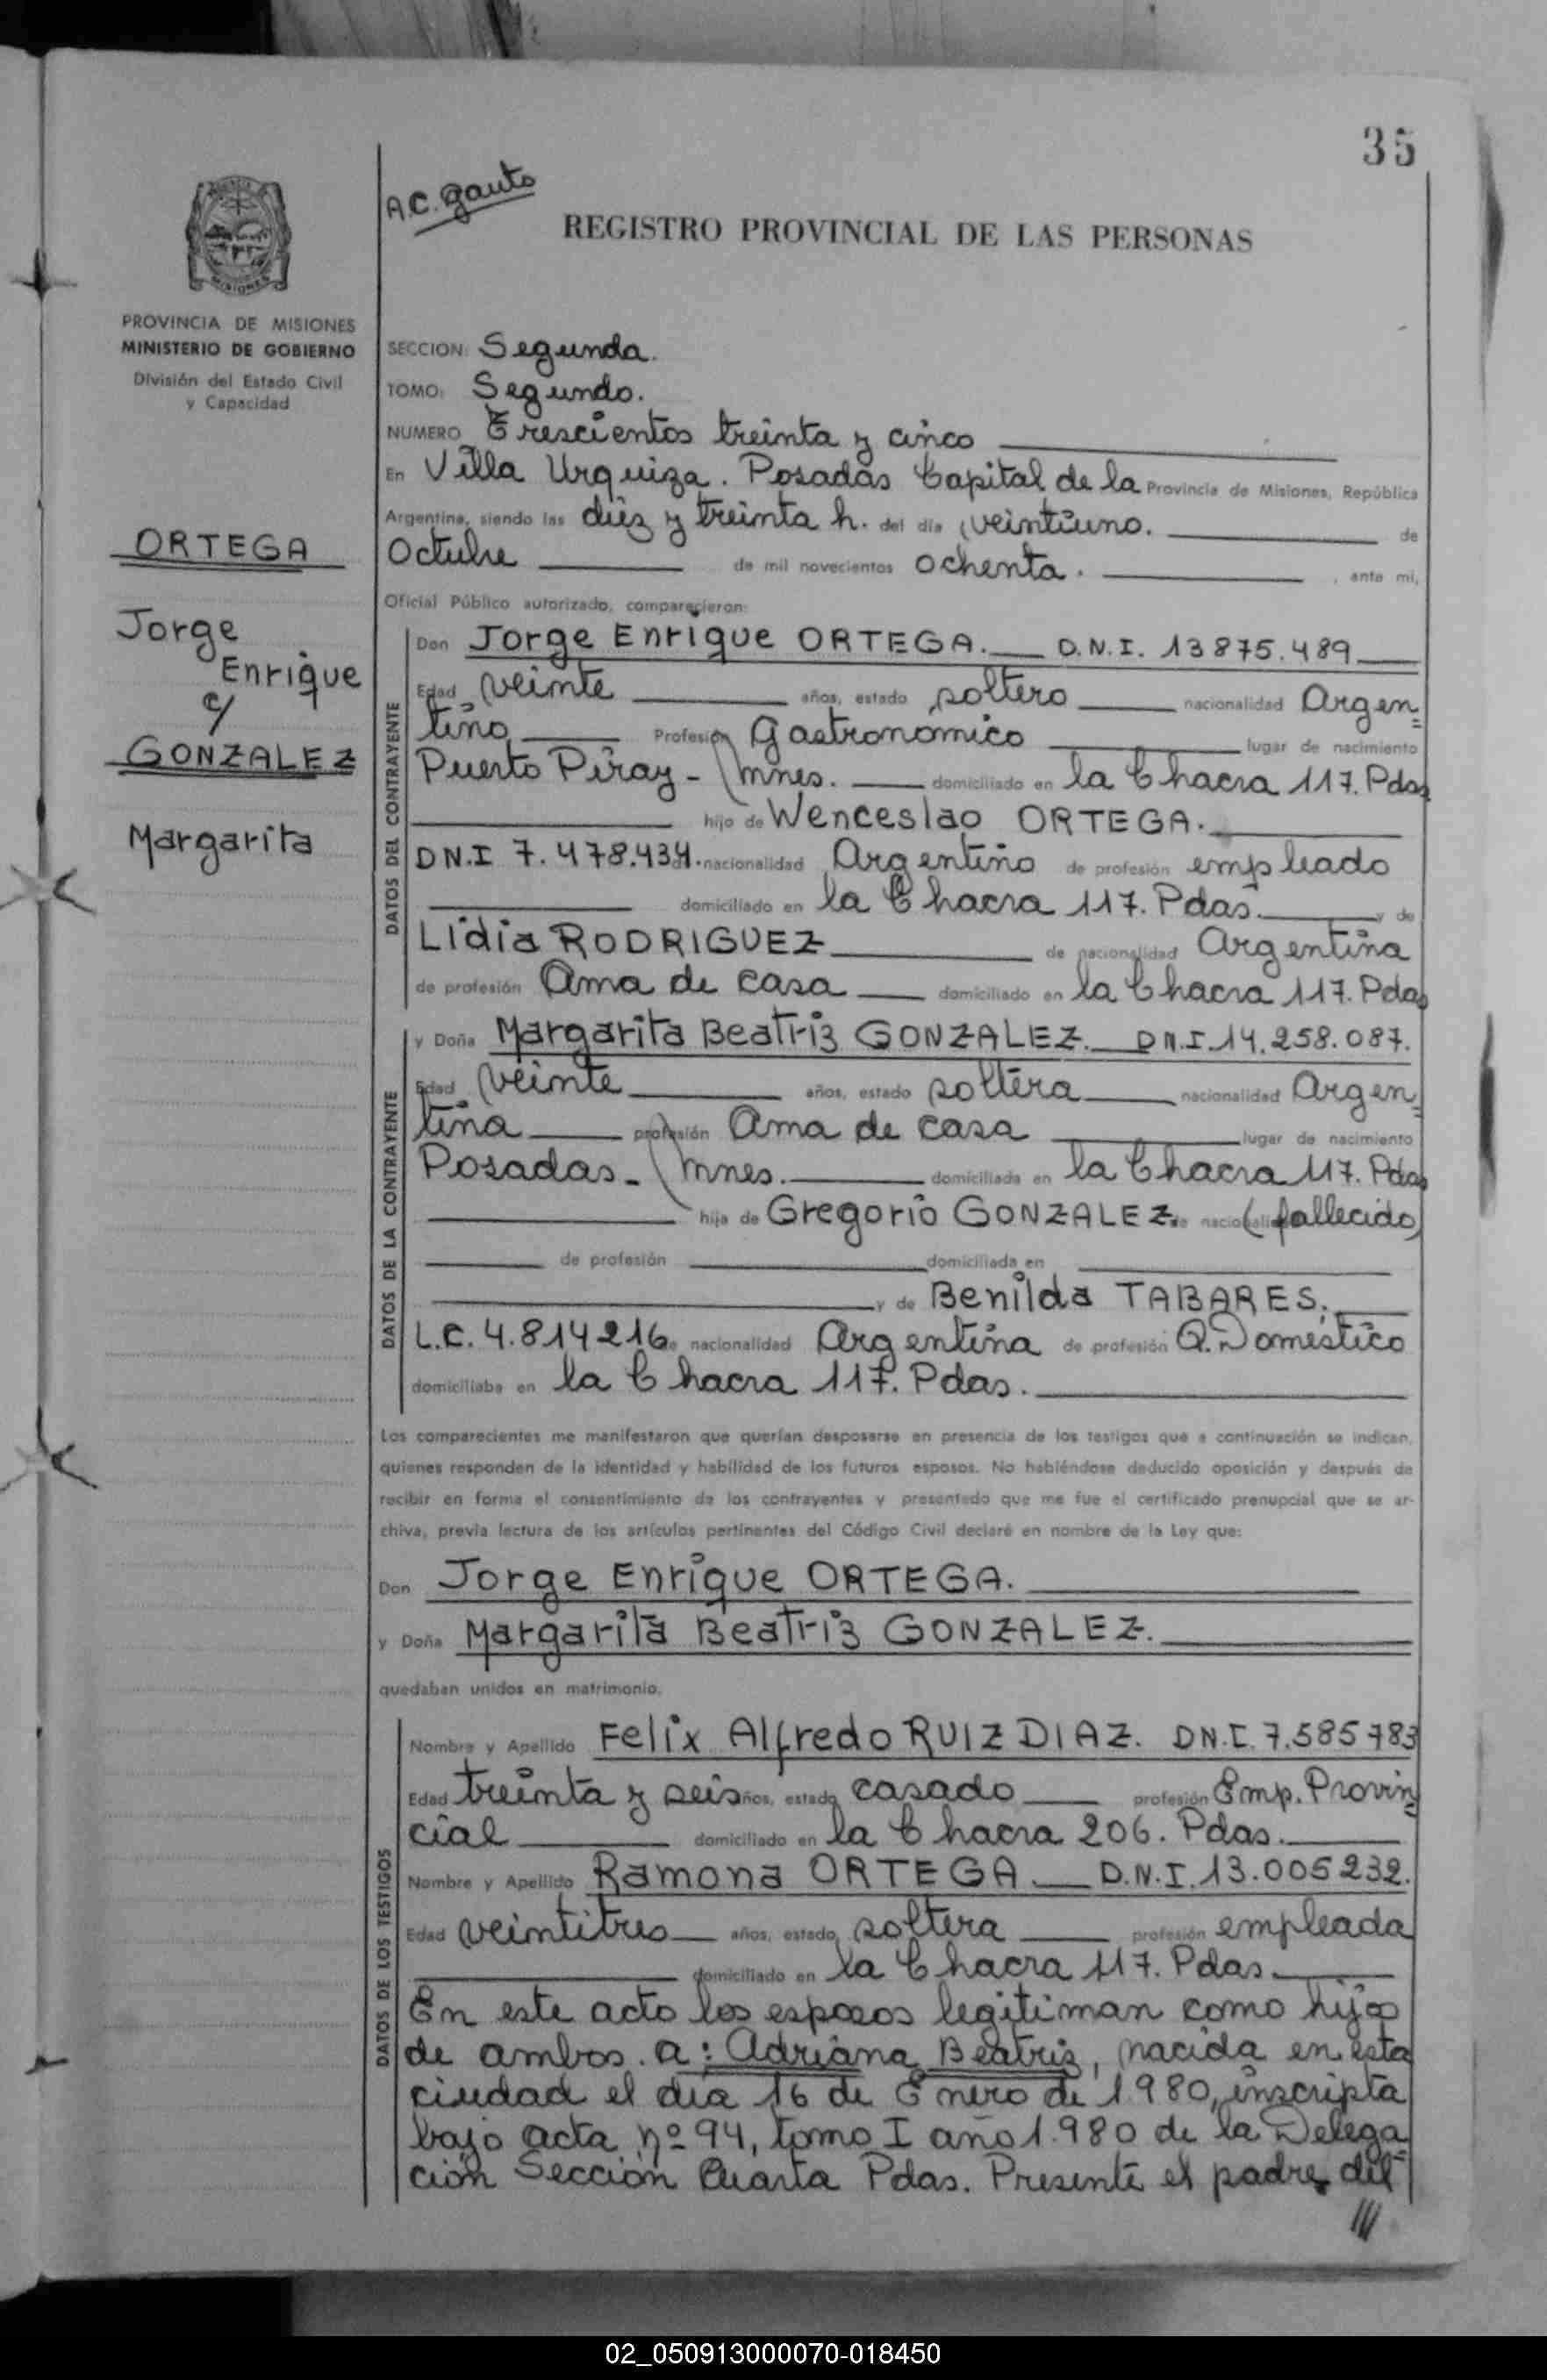 35
A.C. Gauto
REGISTRO PROVINCIAL DE LAS PERSONAS
MISIONES
PROVINCIA DE MISIONES
MINISTERIO DE GOBIERNO
División del Estado Civil
y Capacidad
ORTEGA
Jorge
Enrique
c/
GONZALEZ
Margarita
SECCION: Segunda.
TOMO: Segundo.
NUMERO Trescientos treinta y cinco
En Villa Urquiza. Posadas Capital de la Provincia de Misiones, República
Argentina, siendo las diez y treinta h. del día veintiuno. de
Octubre de mil novecientos ochenta. , ante mi,
Oficial Público autorizado, comparecieron:
DATOS DEL CONTRAYENTE
Don Jorge Enrique ORTEGA. D.N.I. 13875.489
Edad veinte años, estado soltero nacionalidad Argen=
tino Profesión Gastronomico lugar de nacimiento
Puerto Piray - Mnes. domiciliado en la Chacra 117. Pdas
hijo de Wenceslao ORTEGA.
DN.I 7.478.434. nacionalidad Argentino de profesión empleado
domiciliado en la Chacra 117. Pdas. y de
Lidia RODRIGUEZ de nacionalidad Argentina
de profesión Ama de casa domiciliado en la Chacra 117. Pdas
DATOS DE LA CONTRAYENTE
y Doña Margarita Beatriz GONZALEZ. DN.I.14.258.087.
Edad veinte años, estado soltera nacionalidad Argen=
tina profesión Ama de casa lugar de nacimiento
Posadas - Mnes. domiciliada en la Chacra 117. Pdas
hija de Gregorio GONZALEZ. de nacionali (fallecido)
de profesión domiciliada en
y de Benilda TABARES.
L.C. 4.814216 nacionalidad Argentina de profesión Q. Domestico
domiciliaba en la Chacra 117. Pdas.
Los comparecientes me manifestaron que querían desposarse en presencia de los testigos que a continuación se indican,
quienes responden de la identidad y habilidad de los futuros esposos. No habiéndose deducido oposición y después de
recibir en forma el consentimiento de los contrayentes y presentado que me fue el certificado prenupcial que se ar-
chiva, previa lectura de los artículos pertinentes del Código Civil declaré en nombre de la Ley que:
Don Jorge Enrique ORTEGA.
y Doña Margarita Beatriz GONZALEZ.
quedaban unidos en matrimonio.
DATOS DE LOS TESTIGOS
Nombre y Apellido Felix Alfredo RUIZ DIAZ. DN.I. 7.585783
Edad treinta y seis años, estado casado profesión Emp. Provin=
cial domiciliado en la Chacra 206. Pdas.
Nombre y Apellido Ramona ORTEGA D.N.I. 13.005232.
Edad veintitres años, estado soltera profesión empleada
domiciliado en la Chacra 117. Pdas.
En este acto los esposos legitiman como hijos
de ambos. a: Adriana Beatriz, nacida en esta
ciudad el dia 16 de Enero de 1980, inscripta
bajo acta nº 94, tomo I año 1.980 de la Delega=
ción Sección Cuarta Pdas. Presente el padre del
///
02_050913000070-018450